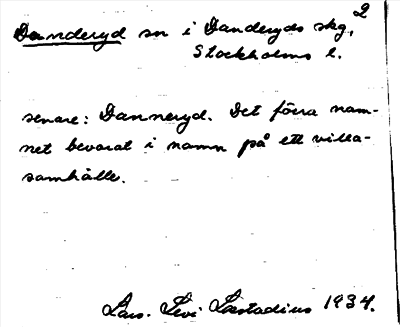 2
Danderyd sn i Danderyds skg,
Stockholms l.
senare: Danneryd. Det förra nam-
net bevarat i namn på ett villa-
samhälle.
Lars. Levi Læstadius 1934.